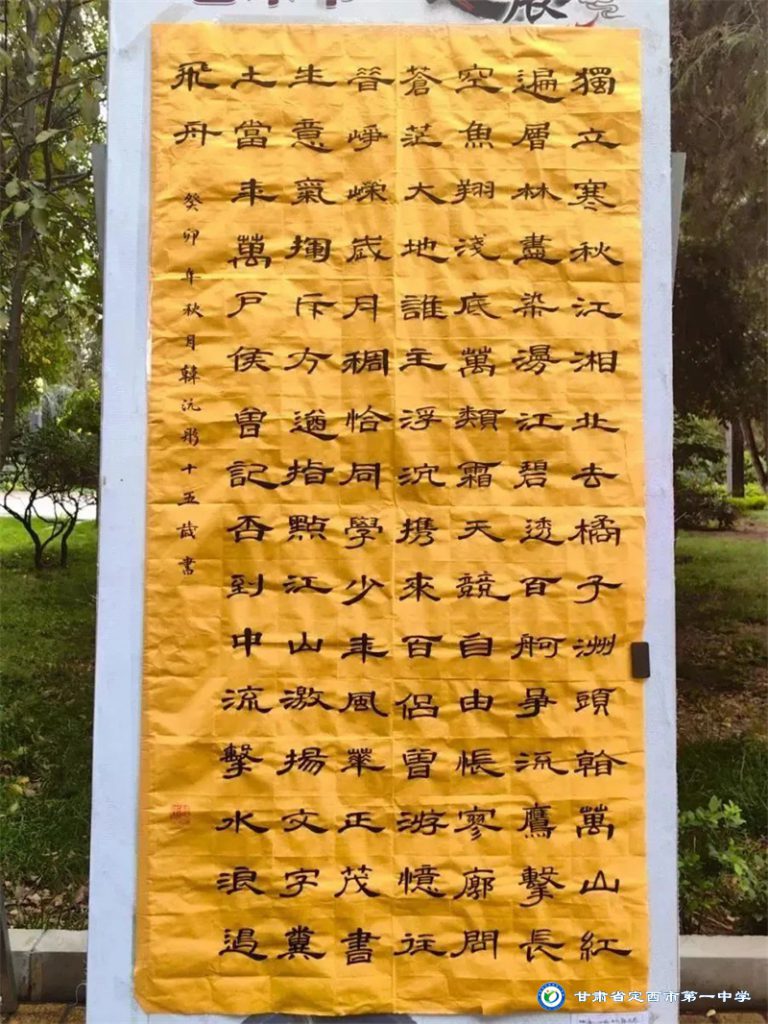 獨立寒秋江湘北去橘子洲頭翰萬山紅
遍層林盡染漫江碧透百舸爭流鷹擊長
空魚翔淺底萬類霜天競自由悵寥廓問
蒼茫大地誰主浮沉携來百侶曾游憶往
昔崢嶸歲月稠恰同學少年風華正茂書
生意氣揮斥方遒指點江山激揚文字糞
土當年萬戶侯曾記否到中流擊水浪遏
飛舟
癸卯年秋月韓沅彤十五歲書
甘肃省定西市第一中学